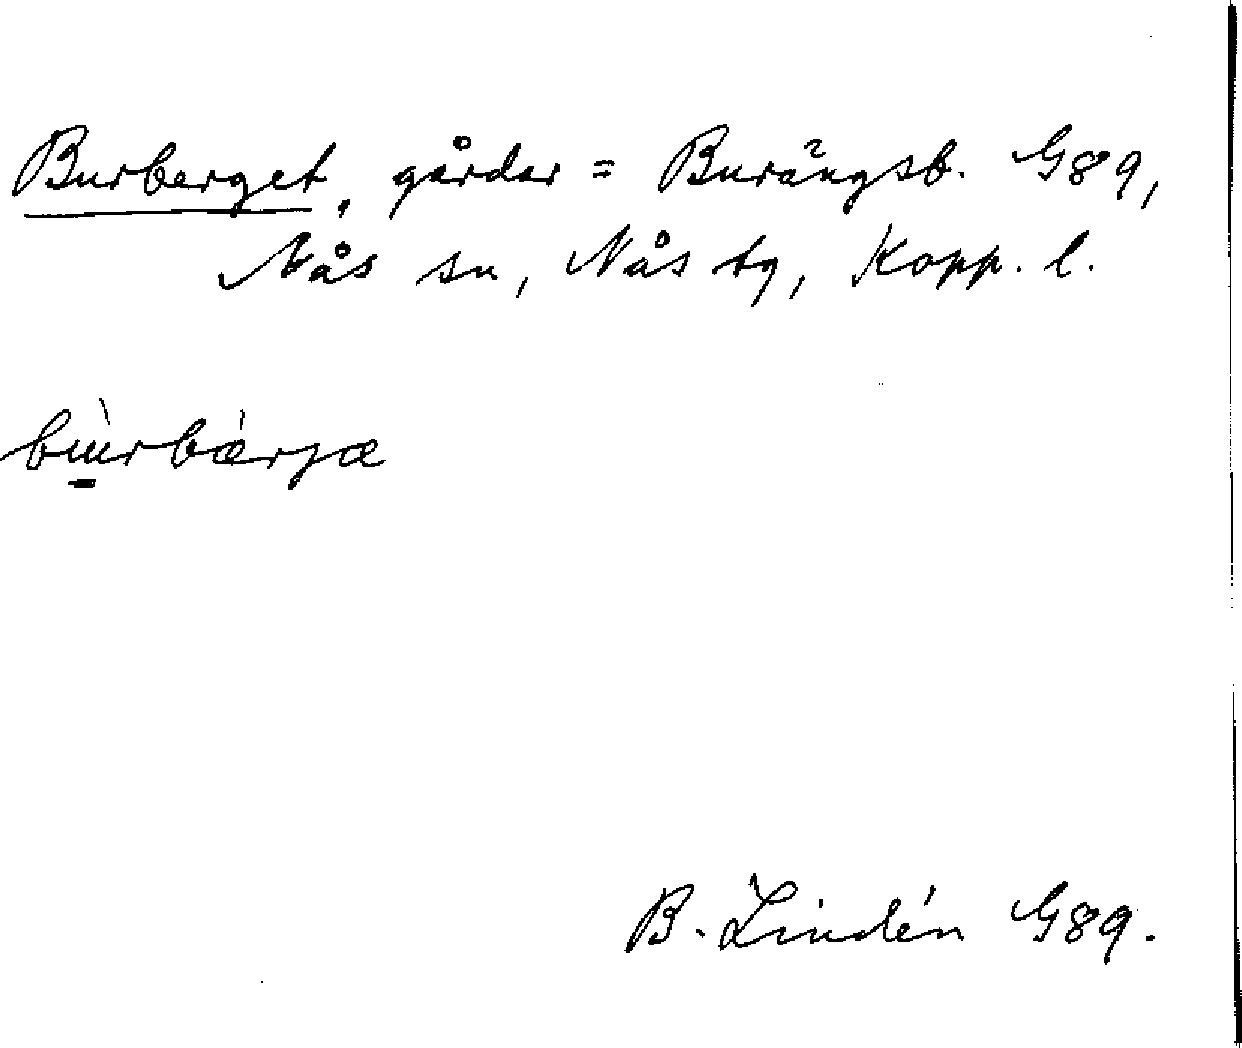 Burberget, gårdar = Burängsb. G89,
Nås sn, Nås tg, Kopp. l.
bu̱̇̀rbæ̀rjæ
B. Lindén G89.